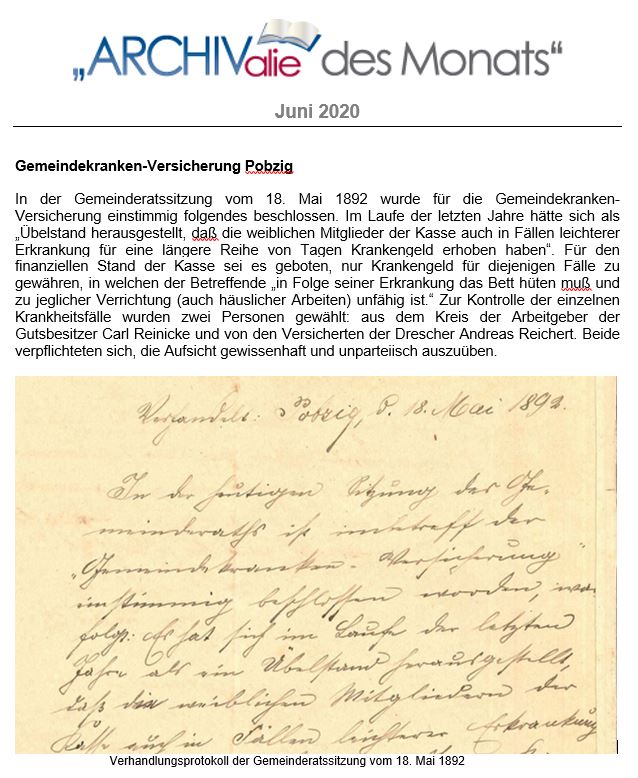 „ARCHIValie des Monats“
Juni 2020
Gemeindekranken-Versicherung Pobzig
In der Gemeinderatssitzung vom 18. Mai 1892 wurde für die Gemeindekranken-
Versicherung einstimmig folgendes beschlossen. Im Laufe der letzten Jahre hätte sich als
„Übelstand herausgestellt, daß die weiblichen Mitglieder der Kasse auch in Fällen leichterer
Erkrankung für eine längere Reihe von Tagen Krankengeld erhoben haben“. Für den
finanziellen Stand der Kasse sei es geboten, nur Krankengeld für diejenigen Fälle zu
gewähren, in welchen der Betreffende „in Folge seiner Erkrankung das Bett hüten muß und
zu jeglicher Verrichtung (auch häuslicher Arbeiten) unfähig ist.“ Zur Kontrolle der einzelnen
Krankheitsfälle wurden zwei Personen gewählt: aus dem Kreis der Arbeitgeber der
Gutsbesitzer Carl Reinicke und von den Versicherten der Drescher Andreas Reichert. Beide
verpflichteten sich, die Aufsicht gewissenhaft und unparteiisch auszuüben.
Verhandelt: Pobzig, d. 18. Mai 1892.
In der heutigen Sitzung des Ge-
meinderaths ist inbetreff der
„Gemeindekranken-Versicherung“
einstimmig beschlossen worden, was
folgt: Es hat sich im Laufe der letzten
Jahre als ein Übelstand herausgestellt,
daß die weiblichen Mitgliedern der
Kasse auch in Fällen leichterer Erkrankung
Verhandlungsprotokoll der Gemeinderatssitzung vom 18. Mai 1892